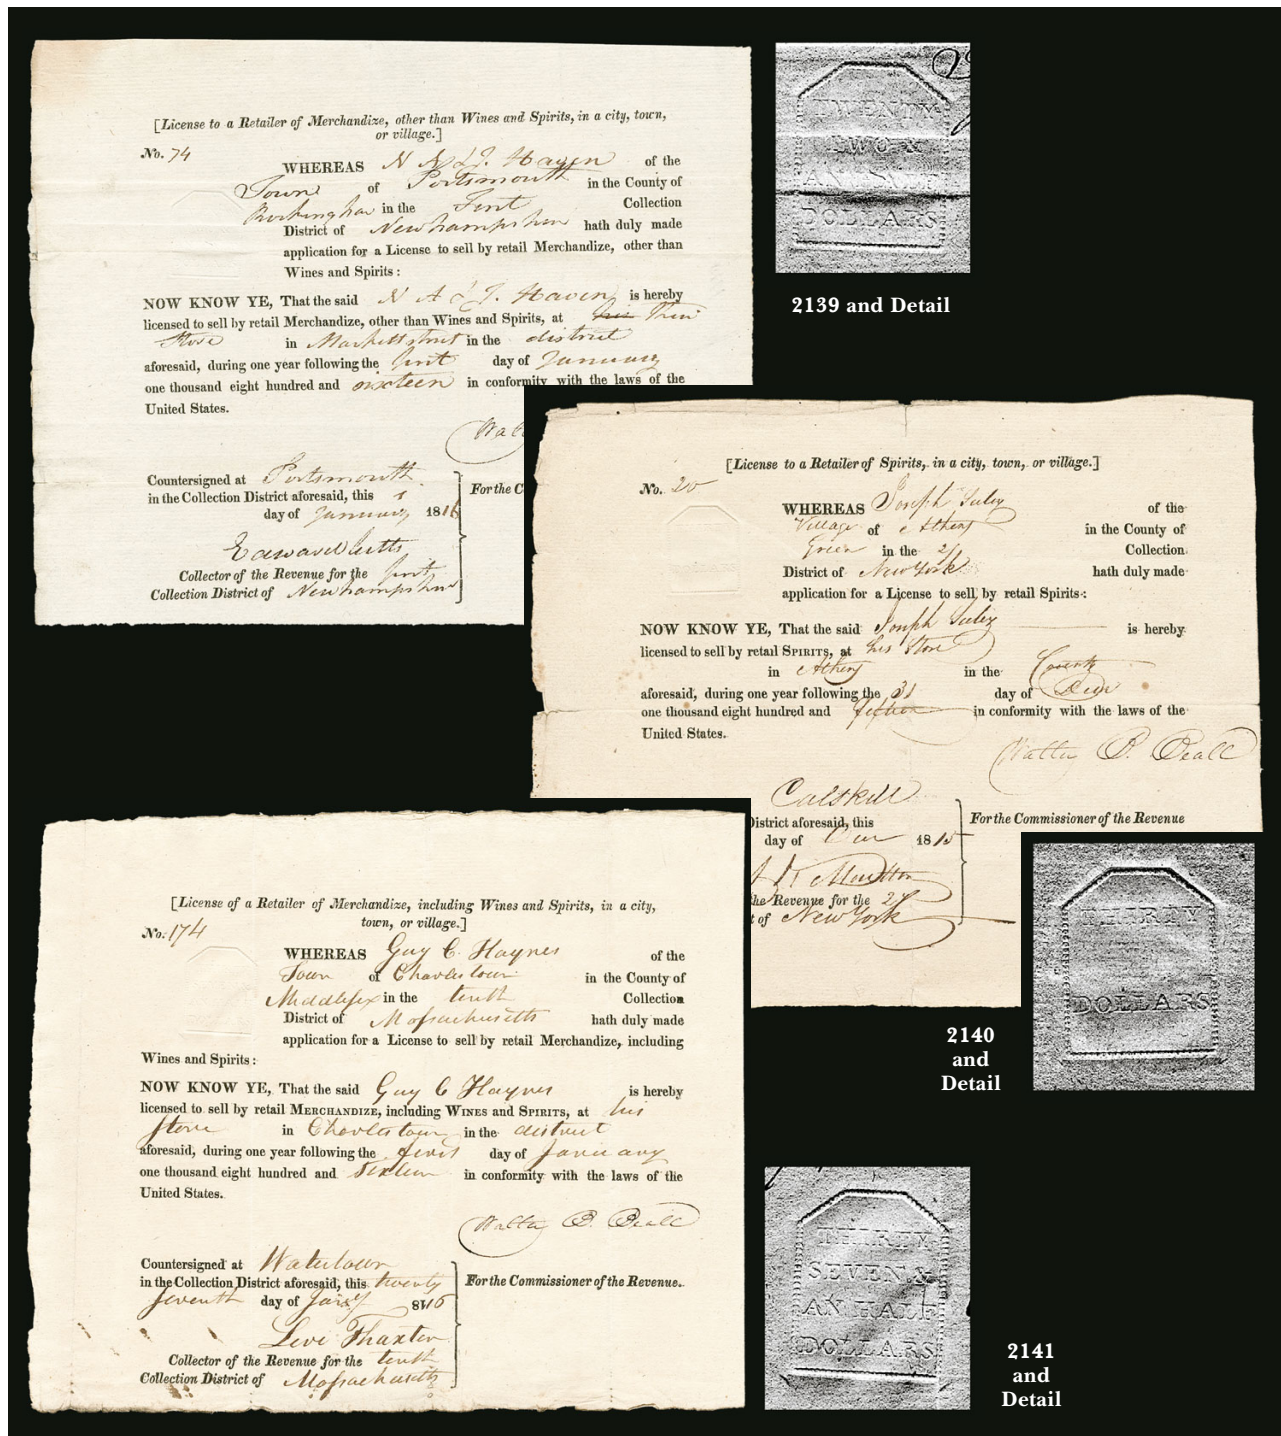 [License to a Retailer of Merchandize, other than Wines and Spirits, in a city, town,
or village.]
No. 74
WHEREAS N A & J. Haven of the
Town of Portsmouth in the County of
Rockingham in the First Collection
District of Newhampshire hath duly made
application for a License to sell by retail Merchandize, other than
Wines and Spirits:
NOW KNOW YE, That the said N A & J. Haven is hereby
licensed to sell by retail Merchandize, other than Wines and Spirits, at his Their
Store in Markett street in the district
aforesaid, during one year following the first day of January
one thousand eight hundred and sixteen in conformity with the laws of the
United States.
Countersigned at Portsmouth
in the Collection District aforesaid, this 1
day of January 1816
For the C
Edward Cutts
Collector of the Revenue for the first
Collection District of Newhampshire
TWENTY
TWO &
AN HALF
DOLLARS
2139 and Detail
[License to a Retailer of Spirits, in a city, town, or village.]
No. 20
WHEREAS Joseph of the
Village of Athens in the County of
Green in the 2 Collection
District of New York hath duly made
application for a License to sell by retail Spirits:
NOW KNOW YE, That the said Joseph is hereby
licensed to sell by retail SPIRITS, at his Store
in Athens in the County
aforesaid, during one year following the 31 day of Decr
one thousand eight hundred and fifteen in conformity with the laws of the
United States.
Walter B. Beall
Catskill
District aforesaid, this
day of Decr 1815
For the Commissioner of the Revenue
the Revenue for the 2
t of New York
THIRTY
DOLLARS
2140
and
Detail
[License of a Retailer of Merchandize, including Wines and Spirits, in a city,
town, or village.]
No. 174
WHEREAS Guy C. Haynes of the
Town of Charlestown in the County of
Middlesex in the tenth Collection
District of Massachusetts hath duly made
application for a License to sell by retail Merchandize, including
Wines and Spirits:
NOW KNOW YE, That the said Guy C Haynes is hereby
licensed to sell by retail MERCHANDIZE, including WINES and SPIRITS, at his
Store in Charlestown in the district
aforesaid, during one year following the first day of January
one thousand eight hundred and sixteen in conformity with the laws of the
United States.
Walter B. Beall
Countersigned at Watertown
in the Collection District aforesaid, this twenty
seventh day of Jany 1816
For the Commissioner of the Revenue.
Levi Thaxter
Collector of the Revenue for the tenth
Collection District of Massachusetts
THIRTY
SEVEN &
AN HALF
DOLLARS
2141
and
Detail